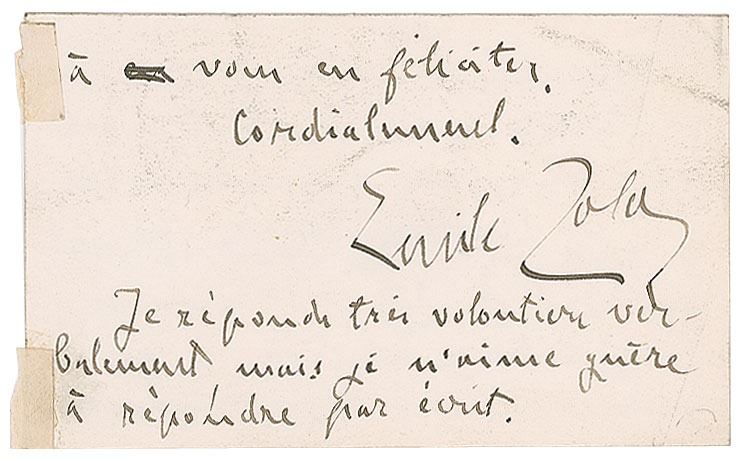 à vous en féliciter.
Cordialement.
Emile Zola
Je réponds très volontiers ver-
balement mais je n'aime guère
à répondre par écrit.